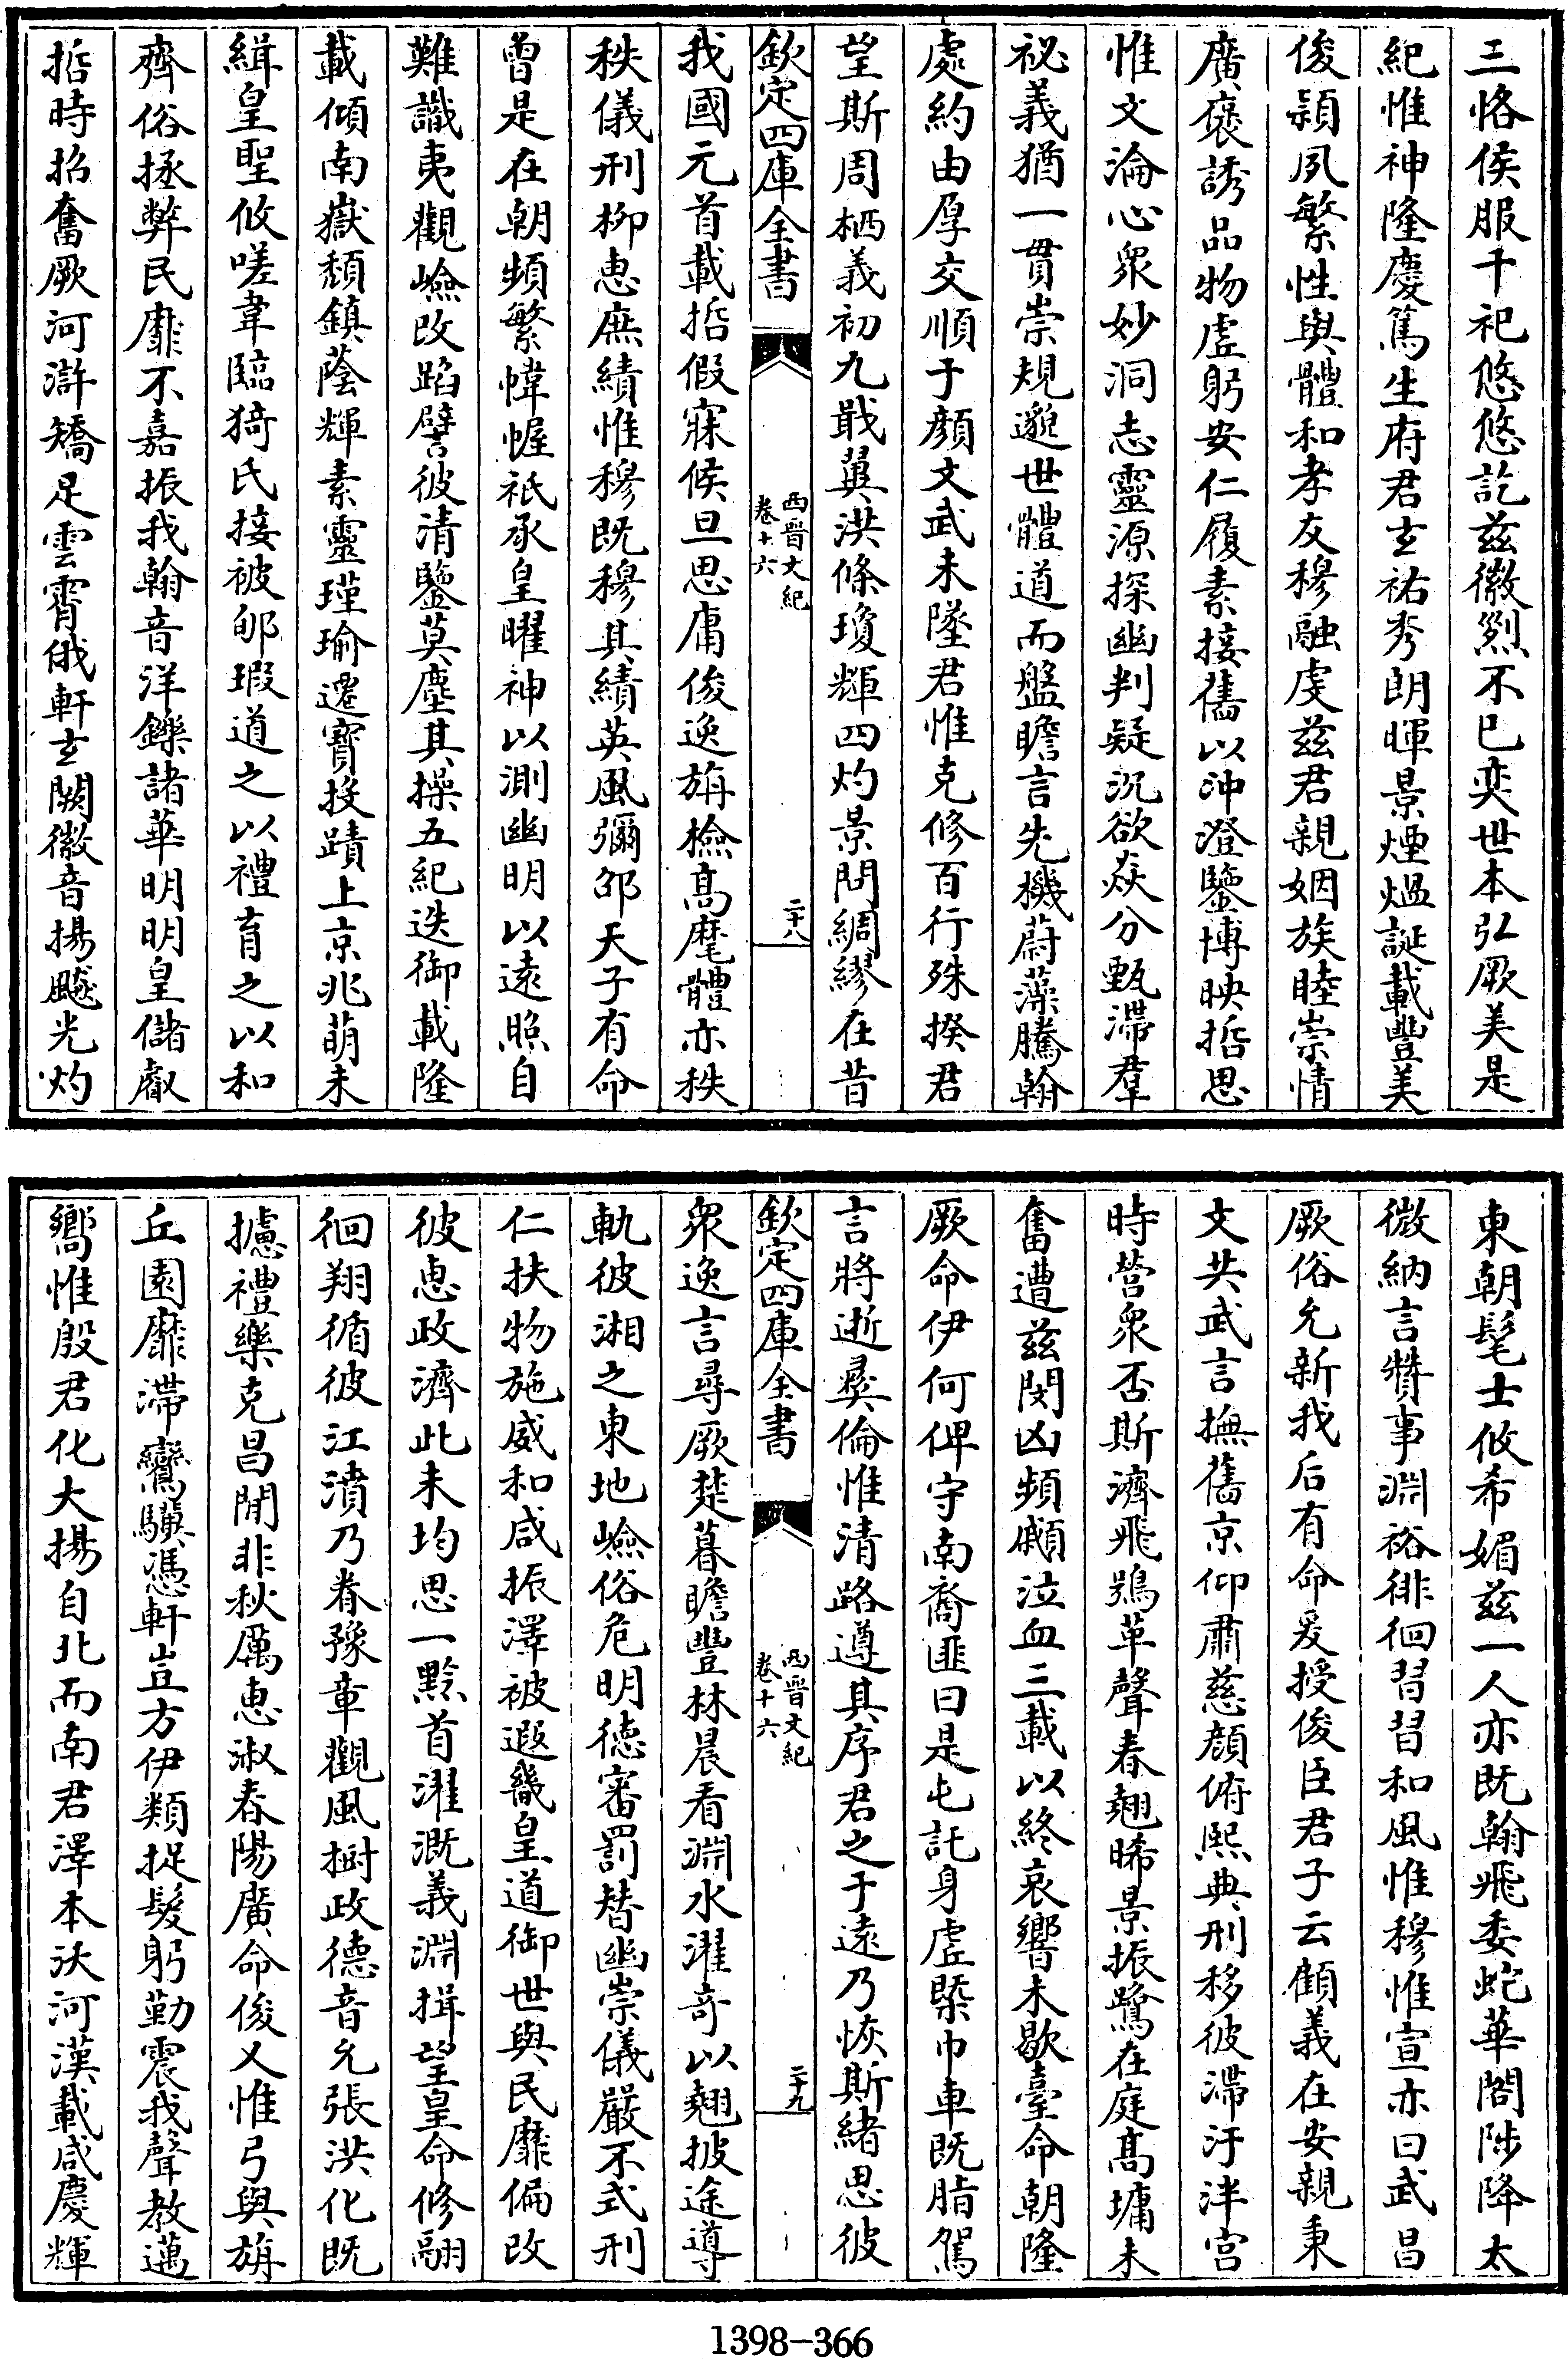 三恪侯服千祀悠悠訖兹徽烈不已奕世本弘厥美是
紀惟神隆慶篤生府君玄祐秀朗暉景煙煴誕載豐美
俊穎夙繁性與體和孝友穆融虔兹君親姻族睦崇情
廣襃誘品物虚躬安仁履素接舊以沖澄鑒博映哲思
惟文淪心衆妙洞志靈源探幽判疑沉欲焱分甄滯羣
祕義猶一貫崇規邈世體道而盤瞻言先機蔚藻騰翰
處約由厚交順于顔文武未墜君惟克修百行殊揆君
望斯周栖義初九戢翼洪條瓊輝四灼景問綢繆在昔
欽定四庫全書
西晉文紀
卷十六
二十八
我國元首載哲假寐候旦思庸俊逸旃檢髙麾體亦秩
秩儀刑栁惠庶績惟穆既穆其績英風彌邵天子有命
曾是在朝頻繁幃幄祇承皇曜神以測幽明以遠照自
難識夷觀嶮改蹈譬彼清鑒莫塵其操五紀迭御載隆
載傾南嶽頽鎮蔭輝素靈瑾瑜遷寳投蹟上京兆萌未
緝皇聖攸嗟韋臨猗氏接被郇瑕道之以禮育之以和
齊俗拯弊民靡不嘉振我翰音洋鑠諸華明明皇儲叡
哲時招奮厥河滸矯足雲霄俄軒玄闕徽音揚飈光灼
東朝髦士攸希媚兹一人亦既翰飛委蛇華閤陟降太
微納言贊事淵裕徘徊習習和風惟穆惟宣亦曰武昌
厥俗允新我后有命爰授俊臣君子云顧義在安親秉
文共武言撫舊京仰肅慈顔俯熙典刑移彼滯汙泮宫
時營衆否斯濟飛鴞革聲春翹晞景振鷺在庭髙墉未
奮遭兹閔凶頻顣泣血三載以終哀響未歇臺命朝隆
厥命伊何俾守南裔匪曰是屯託身虚槩巾車既脂駕
言將逝彛倫惟清路遵其序君之于逺乃恢斯緒思彼
欽定四庫全書
西晉文紀
卷十六
二十九
衆逸言尋厥楚暮瞻豐林晨看淵水濯竒以翹披途導
軌彼湘之東地嶮俗危明徳審罰替幽崇儀嚴不式刑
仁扶物施威和咸振澤被遐畿皇道御世與民靡偏改
彼惠政濟此未均思一黔首濯溉義淵揖望皇命修翮
徊翔循彼江濆乃眷豫章觀風樹政德音允張洪化既
攄禮樂克昌閒非秋厲惠淑春陽廣命俊乂惟弓與旃
丘園靡滯鸞驥慿軒豈方伊類捉髮躬勤震我聲教邁
嚮惟殷君化大揚自北而南君澤本沃河漢載咸慶輝
1398-366